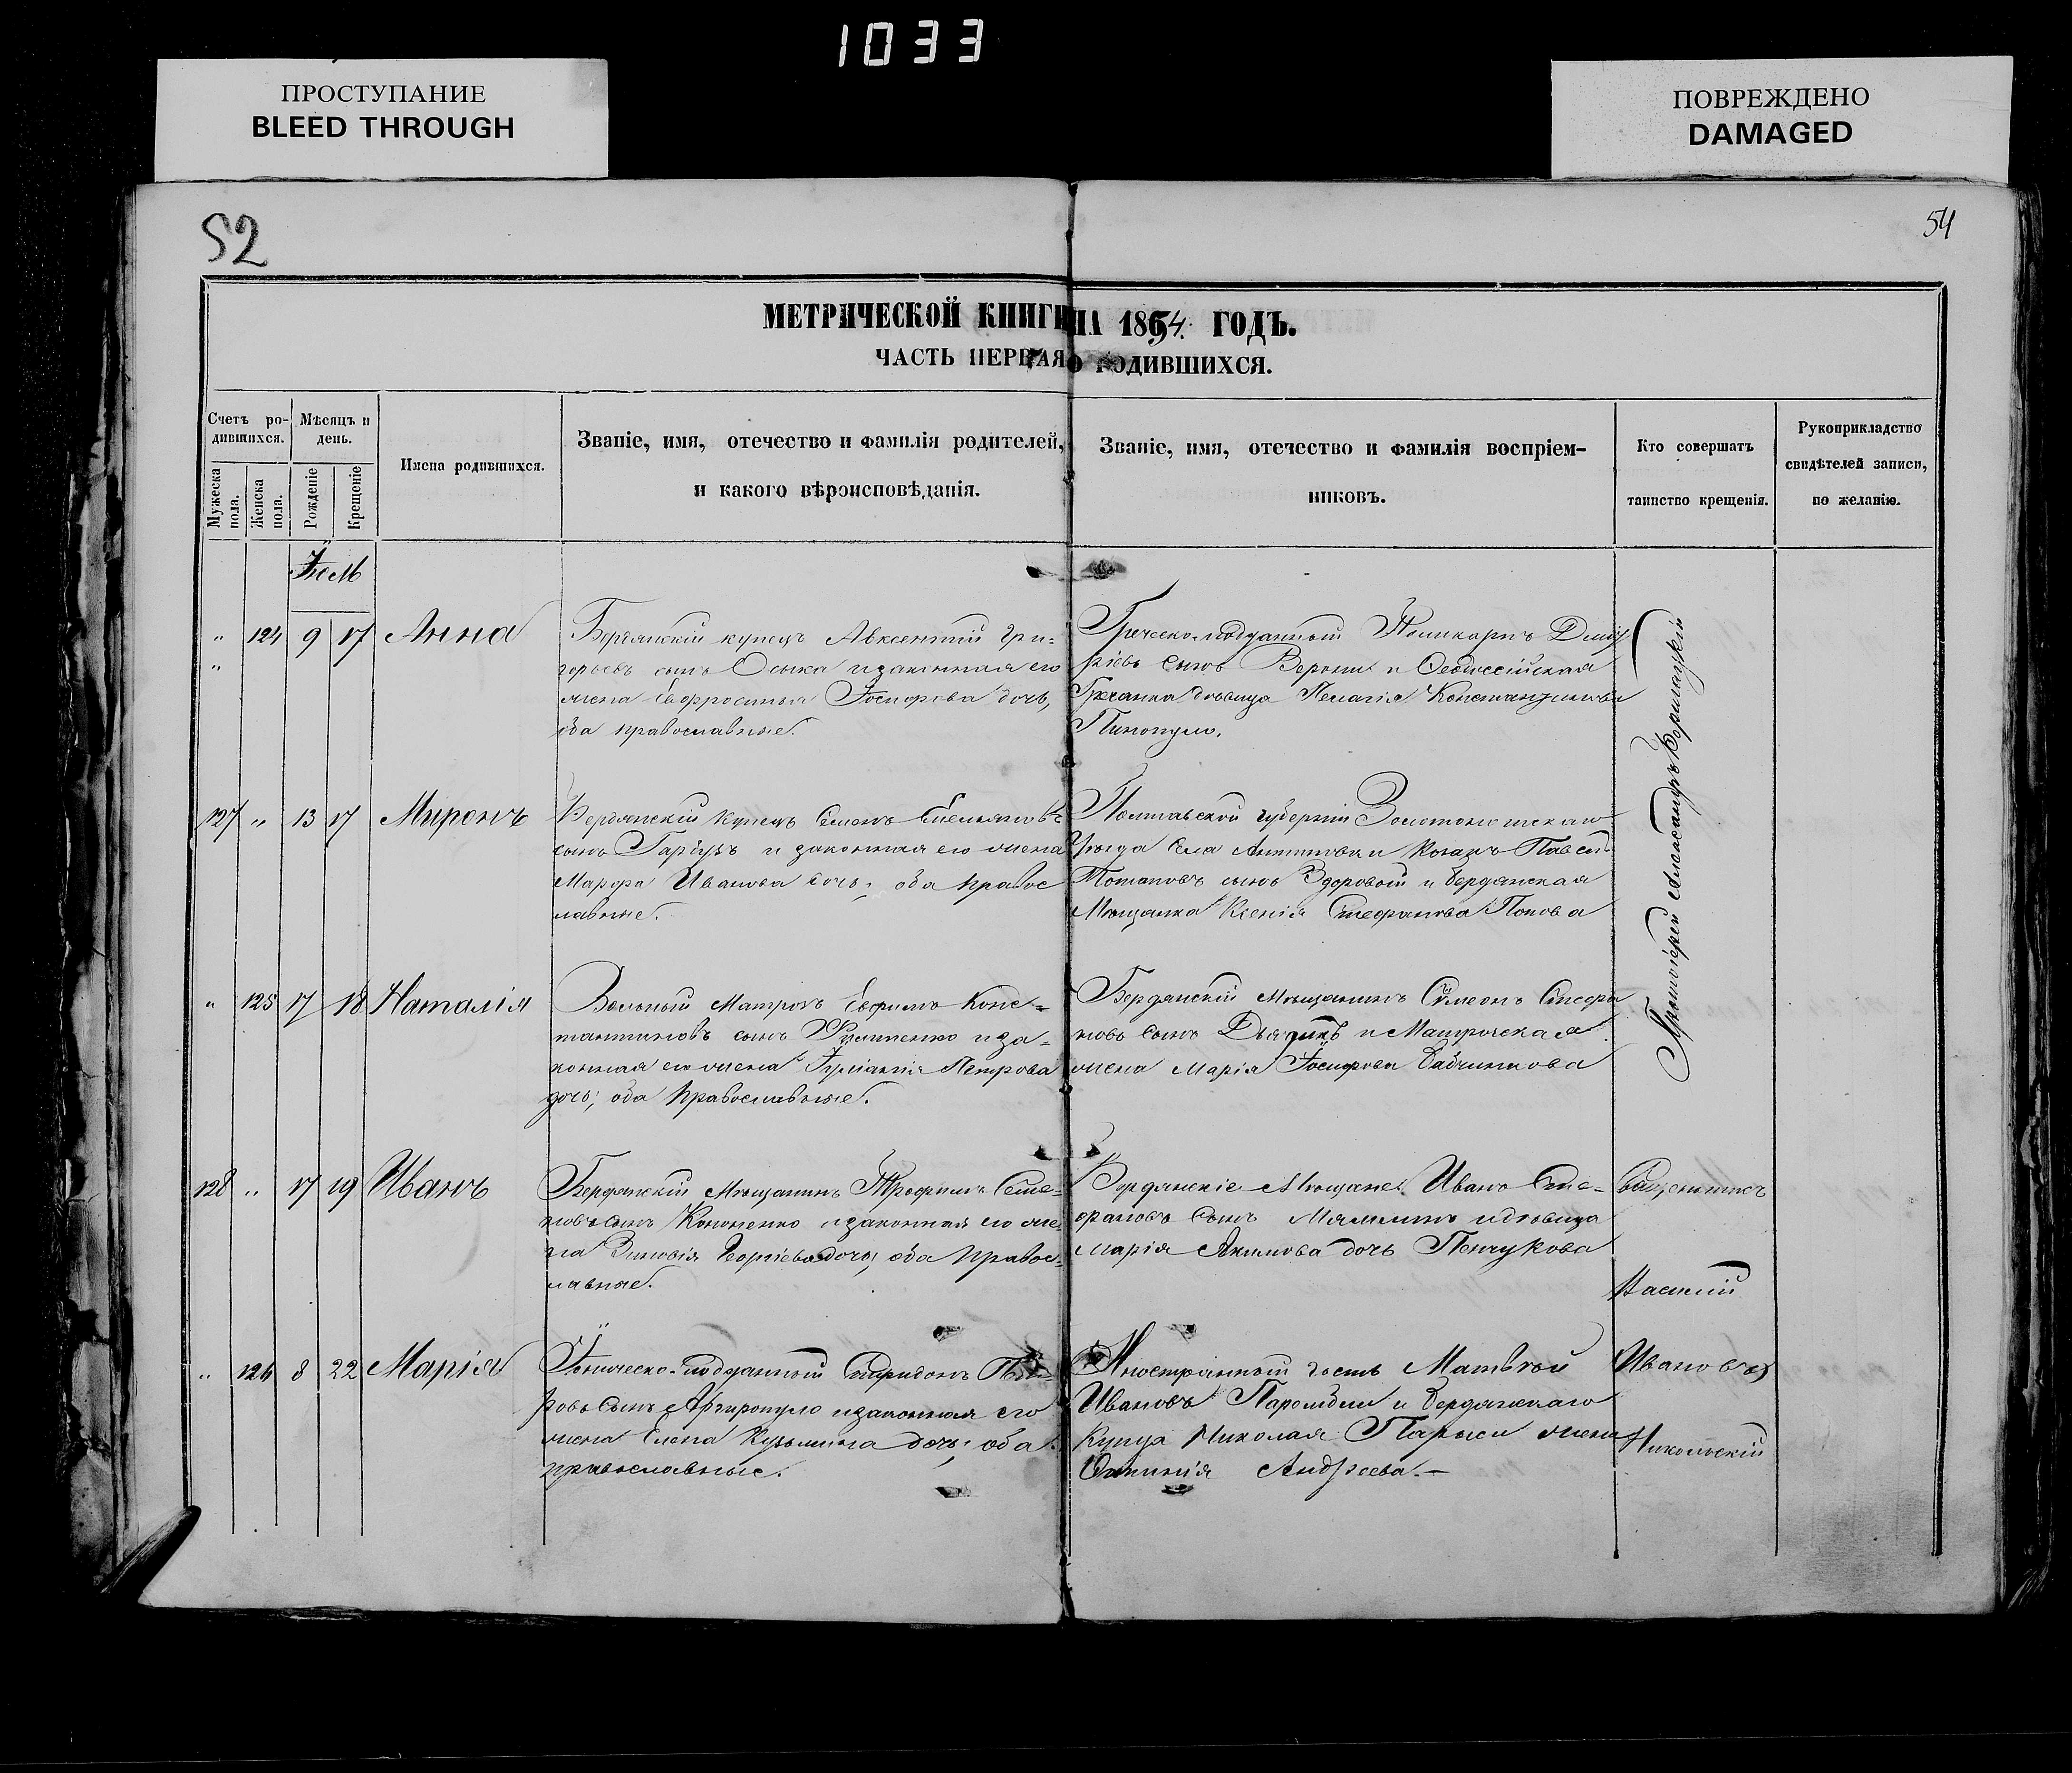 1033
ПРОСТУПАНИЕ
BLEED THROUGH
ПОВРЕЖДЕНО
DAMAGED
52
54
МЕТРИЧЕСКОЙ КНИГИ НА 1854 ГОДЪ.
ЧАСТЬ ПЕРВАЯ О РОДИВШИХСЯ.
Счетъ ро-
дившихся.
Мужеска пола.
Женска пола.
Мѣсяцъ и
день.
Рожденіе
Крещеніе
Имена родившихся.
Званіе, имя, отечество и фамилія родителей,
и какого вѣроисповѣданія.
Званіе, имя, отечество и фамилія воспріем-
никовъ.
Кто совершалъ
таинство крещенія.
Рукоприкладство
свидѣтелей записи,
по желанію.
„ 124 9 17 Анна
Бердянскій купецъ Авксентій Гри-
горьевъ сынъ Осыка и законная его
жена Евфросинья Іосифова дочь,
оба православные.
Греческо-подданный Поликарпъ Дмит
ріевъ сынъ и Ѳеодосійская
Гречанка дѣвица Пелагія Константинова
127 „ 13 17 Миронъ
Бердянскій купецъ Семенъ Емельяновъ
сынъ и законная его жена
Марфа Иванова дочь, оба правос
лавные.
Полтавской губерніи Золотоношскаго
уѣзда села Козакъ Павелъ
Потаповъ сынъ Здоровый и бердянская
Мѣщанка Ксенія Стефанова Попова
Протоіерей Александръ
„ 125 17 18 Наталія
Вольный Матрозъ Ефимъ Конс-
тантиновъ сынъ и за-
конная его жена Петрова
дочь, оба православные.
Бердянскій мѣщанинъ Сѵмеонъ Стефа
новъ сынъ и Матрозская
жена Марія Іосифова
128 „ 17 19 Иванъ
Бердянскій Мѣщанинъ Трофимъ Семе-
новъ сынъ Кононенко и законная его же-
на Зиновія дочь, оба правос-
лавные.
Бердянскіе Мѣщане Иванъ Сте-
фановъ сынъ и дѣвица
Марія Акимова дочь
Священникъ
„ 126 8 22 Марія
Іоническо-подданный Спиридонъ
сынъ Аргиропуло и законная его
жена Елена Кузьмина дочь, оба
православные.
Иностранный гость Матвѣй
Ивановъ и бердянскаго
купца Николая жена
Андреева.—
Ивановъ
Никольскій